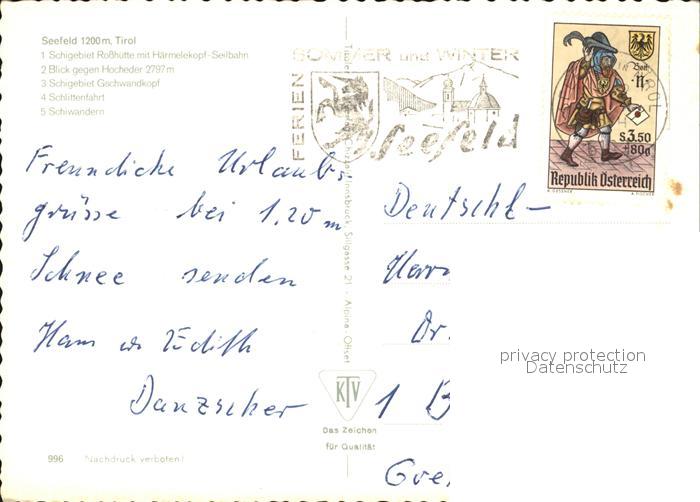 Seefeld 1200 m, Tirol
1 Schigebiet Roßhütte mit Härmelekopf-Seilbahn
2 Blick gegen Hocheder 2797 m
3 Schigebiet Gschwandkopf
4 Schlittenfahrt
5 Schiwandern
FERIEN
SOMMER und WINTER
Seefeld
S 3.50
+80g
Republik Österreich
Freundliche Urlaubs-
grüsse bei 1,20 m
Schnee senden
Hans u. Edith
Danzscher
Innsbruck, Sillgasse 21 - Alpina-Offset
KTV
Das Zeichen
für Qualität
996 Nachdruck verboten!
Deutschl-
Herrn
Dr.
1 B
privacy protection
Datenschutz